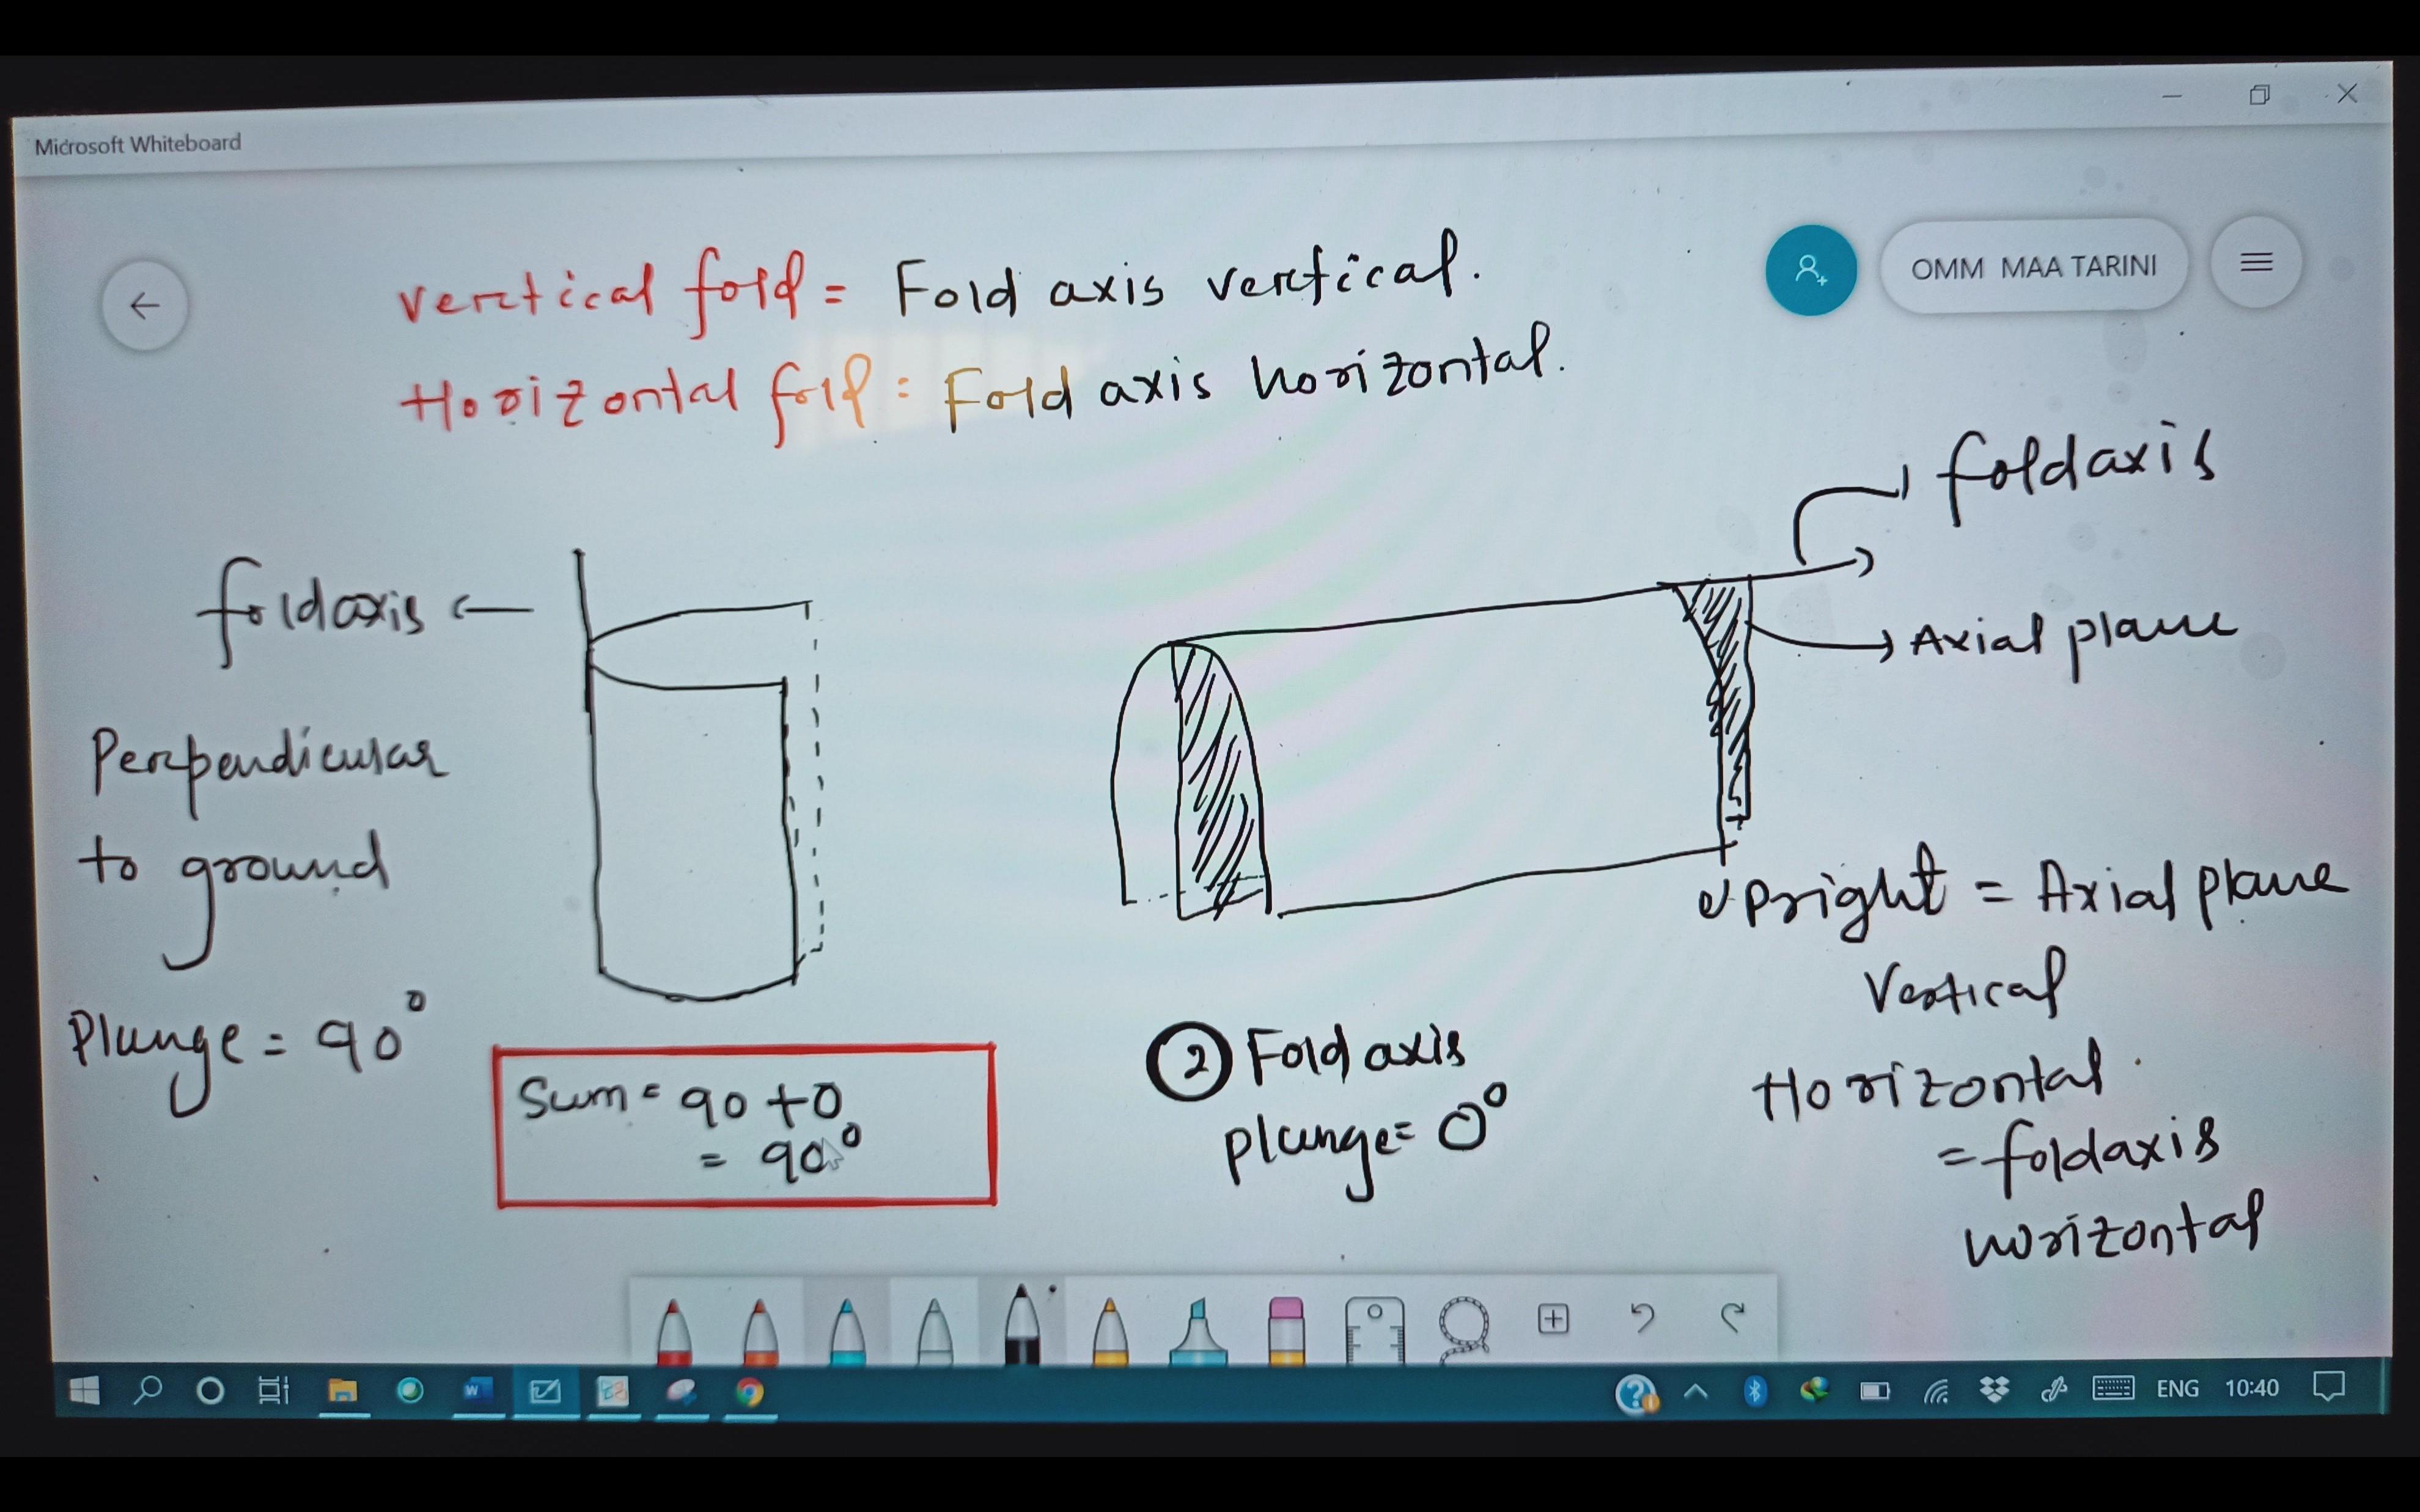 Microsoft Whiteboard
OMM MAA TARINI
vertical fold = Fold axis vertical.
Horizontal fold = Fold axis horizontal.
foldaxis
foldaxis
Axial plane
Perpendicular
to ground
Plunge = 90°
Sum = 90 + 0
= 90°
2 Fold axis
plunge = 0°
Upright = Axial plane
Vertical
Horizontal
= foldaxis
horizontal
ENG 10:40